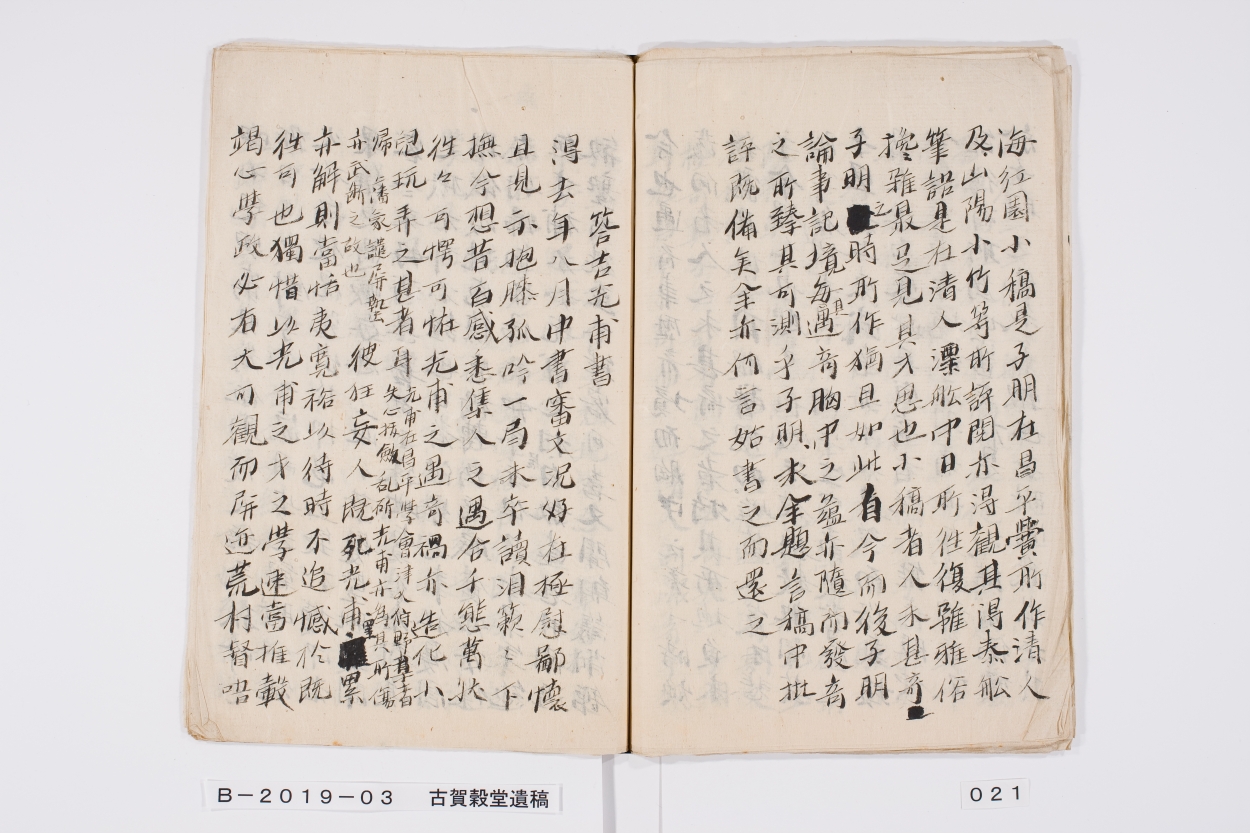 海紅園小稿是子明在昌平黌所作清人
及山陽小竹等所評閱亦得觀其得泰舩
筆語是在清人漂舩中日所往復雖雅俗
攙雜最足見其才思也小稿者人未甚奇
子明之時所作猶且如此自今而後子明
論事記境每遇奇胸中之蘊亦隨而發奇
之所臻其可測乎子明求余題言稿中批
評既備矣余亦何言姑書之而還之
答吉光甫書
得去年八月中書審文況好在極慰鄙懷
且見示抱膝孤吟一局未卒讀淚簌〻下
撫今想昔百感悉集人之遇合千態萬狀
往々可愕可怪光甫之遇奇禍亦造化小
兒玩弄之甚者耳光甫在昌平學會津人狩野某者
失心拔劍乱斫光甫亦為其所傷
歸藩家譴屏塾
亦武斷之故也
彼狂妄人既死光甫罪累
亦解則當恬夷寬裕以待時不追憾於既
往可也獨惜以光甫之才之學速當推轂
竭心學政必有大可觀而屏迹荒村督唔
B－2019－03　古賀穀堂遺稿
021